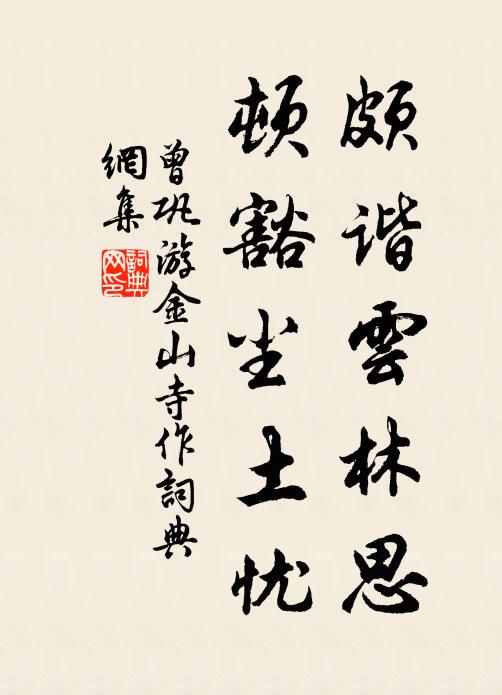 颇谐雲林思
顿豁尘土忧
曾巩游金山寺作詞典
網集
詞典
网印